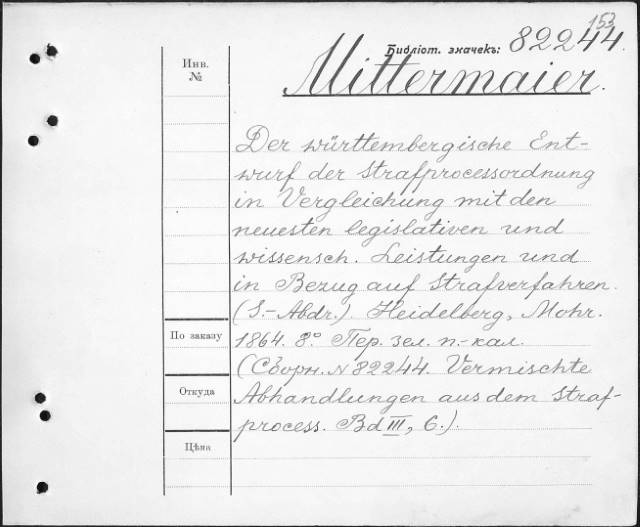 153
Инв. №
Библіот. значекъ: 82244.
Mittermaier.
Der württembergische Ent-
wurf der Strafprocessordnung
in Vergleichung mit den
neuesten legislativen und
wissensch. Leistungen und
in Bezug auf Strafverfahren.
(S.-Abdr.). Heidelberg, Mohr.
По заказу
1864. 8° Пер. зел. п.-кал.
(Сборн. N 82244. Vermischte
Откуда
Abhandlungen aus dem Straf-
process. Bd III, 6.).
Цѣна